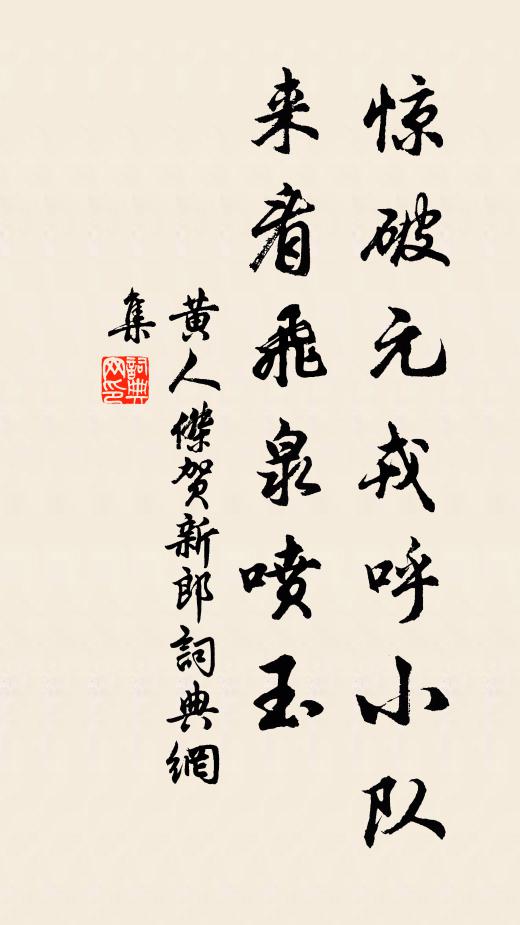 惊破元戎呼小队
来看飛泉喷玉
黄人傑贺新郎詞典網
集
詞典网印